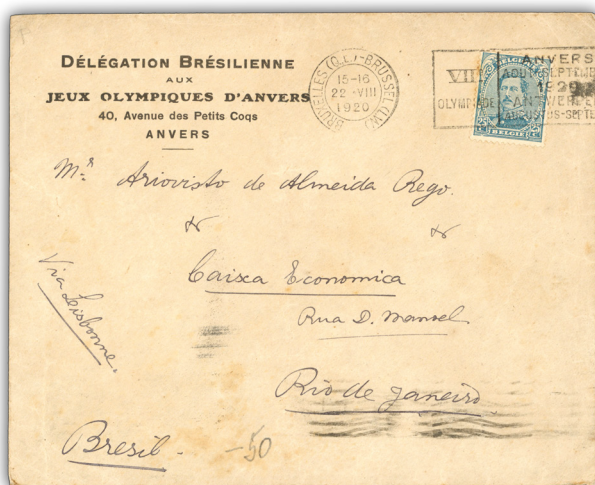 DÉLÉGATION BRÉSILIENNE
AUX
JEUX OLYMPIQUES D'ANVERS
40, Avenue des Petits Coqs
ANVERS
BRUXELLES (Q.L.)-BRUSSEL (L.W.)
15-16
22-VIII
1920
VIII
OLYMPIADE
ANVERS
AOUT-SEPTEMB
1920
ANTWERPEN
AUGUSTUS-SEPTE
BELGIQUE
25 25
BELGIË
Mr. Ariovisto de Almeida Rego.
Caixa Economica
Rua D. Manoel
Rio de Janeiro
Via Lisbonne.
Bresil. -50